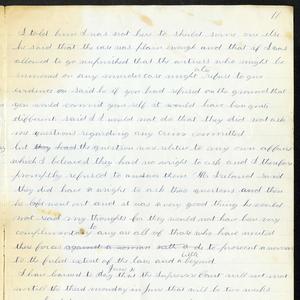 11
I told him I was not here to shield some one else
he said that the case was plain enough and that if I was
allowed to go unpunished that the witness who might be
also
summoned on any murder case might refuse to give
evidence on said he if you had refused on the ground that
you would commit yourself it would have been quite
different said I I would not do that they did not ask
me questions regarding any crime committed
but the question was relative to my own affairs
which I believed they had no wright to ask and I therefore
promptly refused to answer them Mr Ireland said
they did have a wright to ask those questions and then
he went out and it was a very good thing he could
not read my thoughts for they would not have been very
complimentary to any or all of those who have tried
their force against a woman to prevent a woman
to the fulest extent of the law and a little beyond
I have learned to day that the Supreme Court will not meet
until the third monday in June that will be two weeks